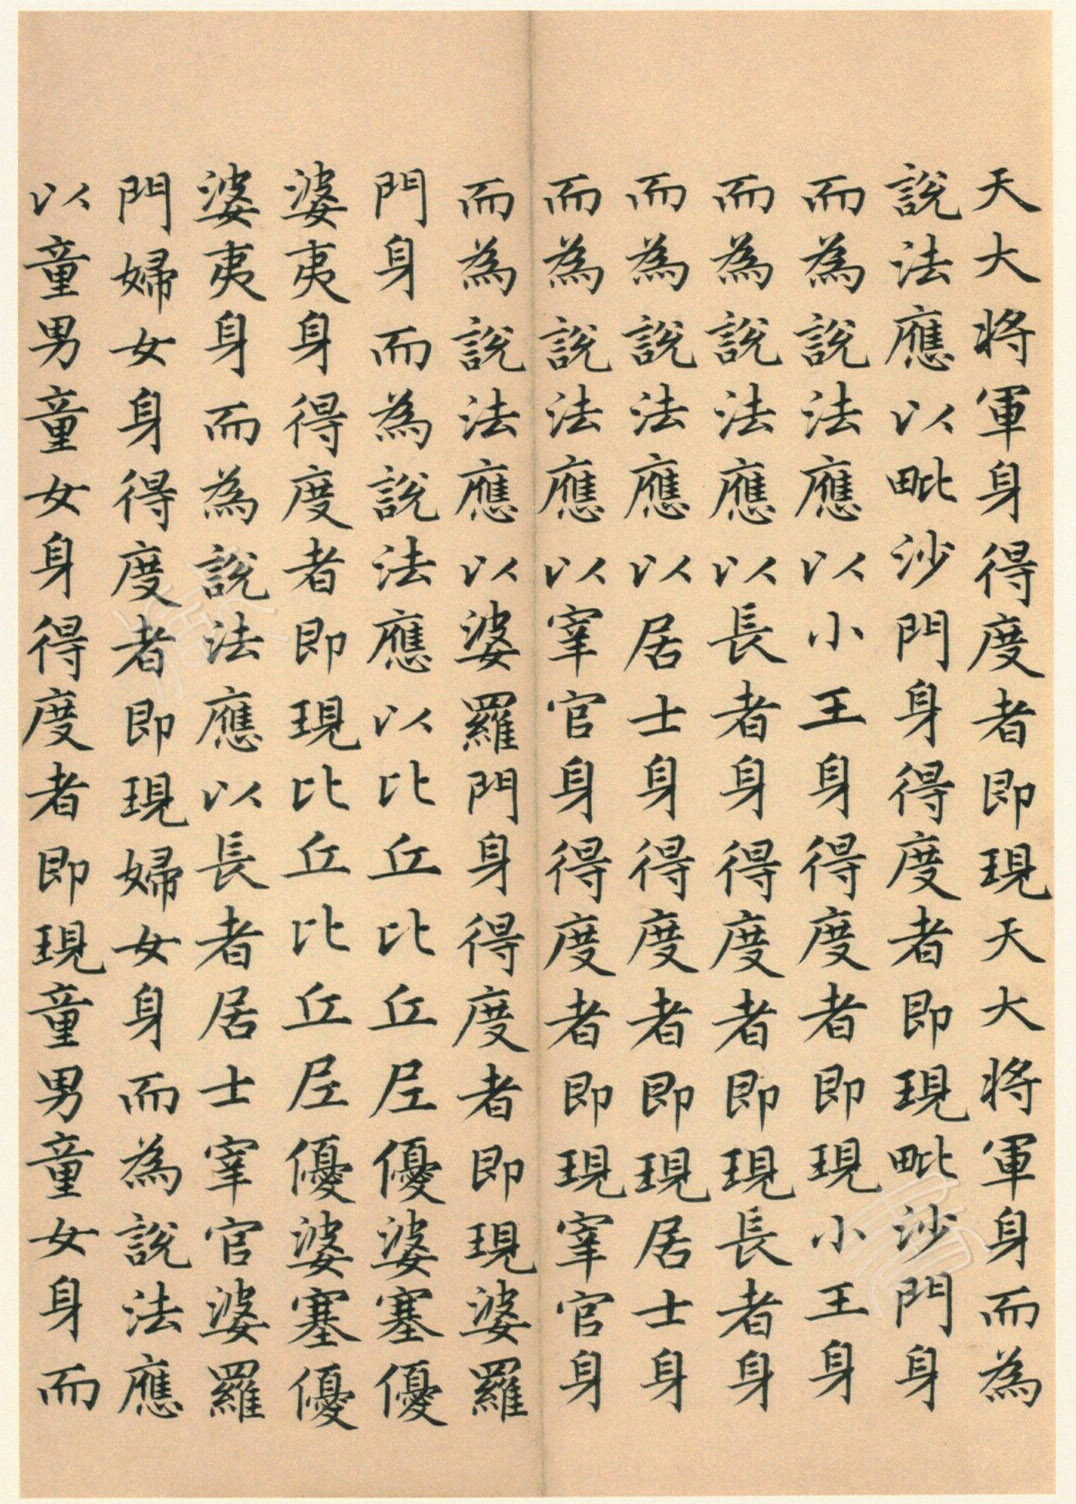 天大将軍身得度者即現天大将軍身而為
說法應以毗沙門身得度者即現毗沙門身
而為說法應以小王身得度者即現小王身
而為說法應以長者身得度者即現長者身
而為說法應以居士身得度者即現居士身
而為說法應以宰官身得度者即現宰官身
而為說法應以婆羅門身得度者即現婆羅
門身而為說法應以比丘比丘尼優婆塞優
婆夷身得度者即現比丘比丘尼優婆塞優
婆夷身而為說法應以長者居士宰官婆羅
門婦女身得度者即現婦女身而為說法應
以童男童女身得度者即現童男童女身而